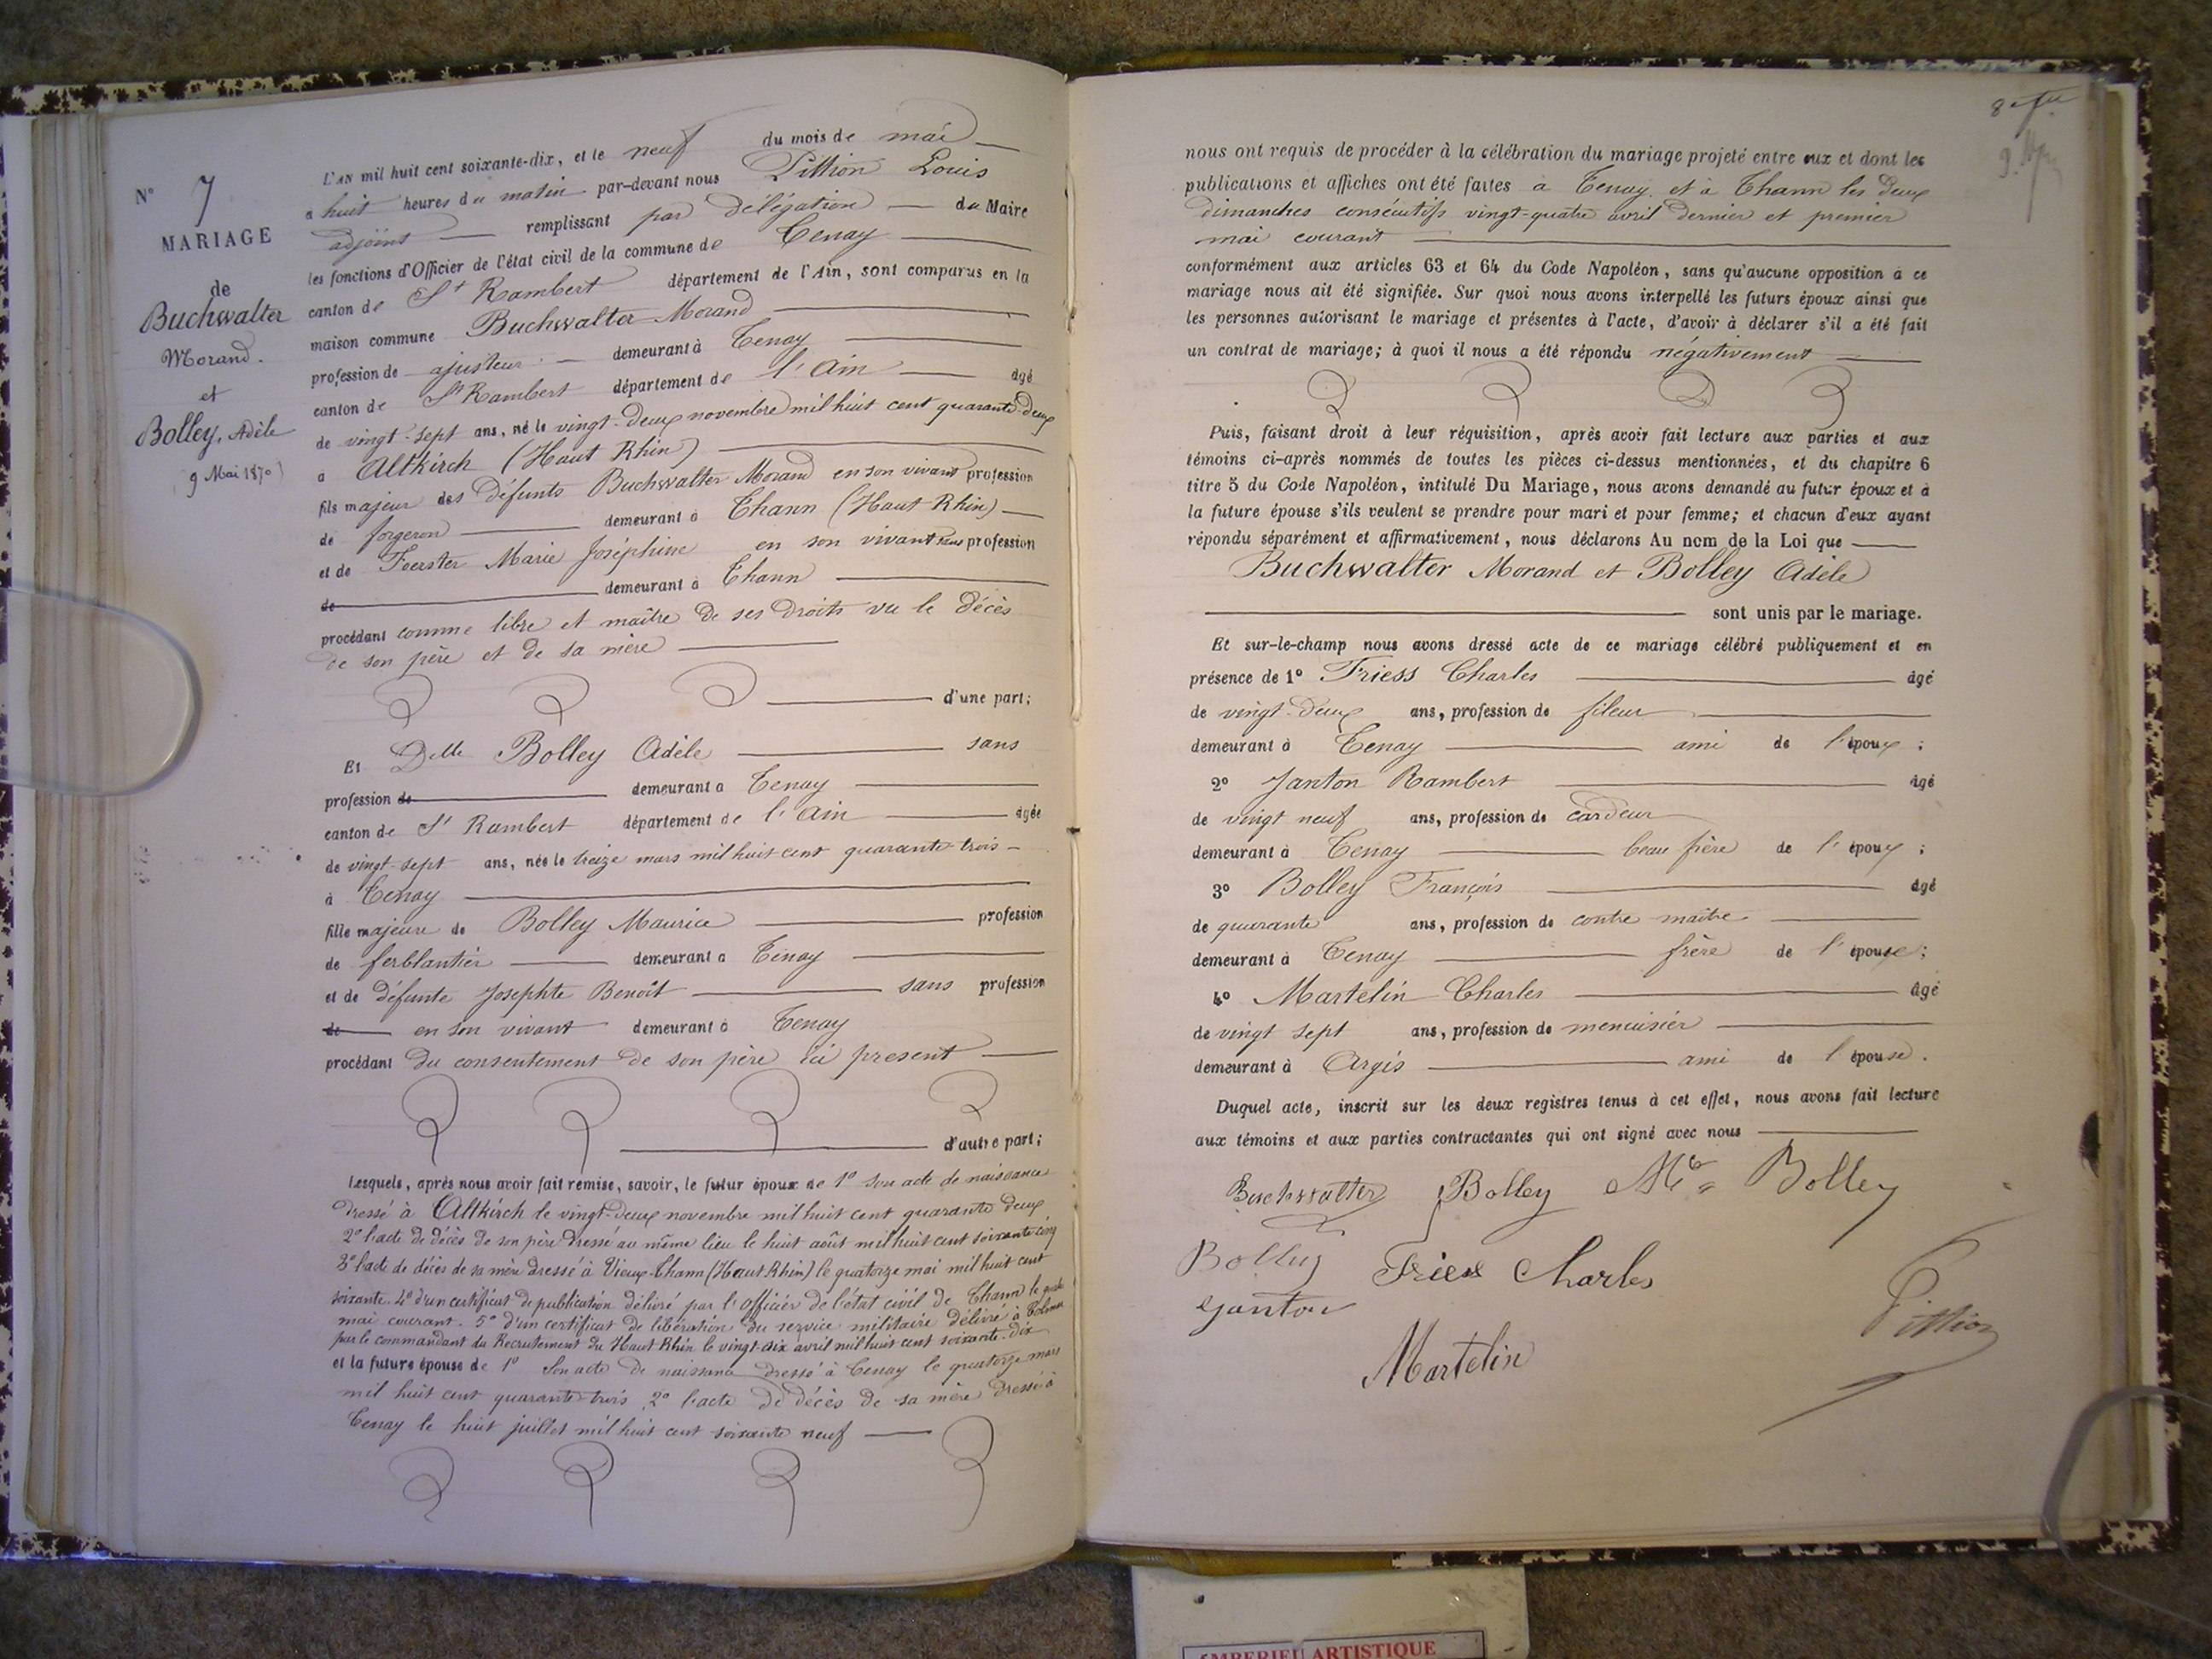 N° 7
MARIAGE
de
Buchwalter
Morand.
et
Bolley, Adèle
9 Mai 1870
L'AN mil huit cent soixante-dix, et le neuf du mois de mai
a huit heures du matin par-devant nous Pittion Louis
adjoint remplissant par délégation du Maire
les fonctions d'Officier de l'état civil de la commune de Tenay
canton de St Rambert département de l'Ain, sont comparus en la
maison commune Buchwalter Morand
profession de ajusteur demeurant à Tenay
canton de St Rambert département de l'Ain âgé
de vingt-sept ans, né le vingt-deux novembre mil huit cent quarante-deux
a Altkirch (Haut Rhin)
fils majeur des défunts Buchwalter Morand en son vivant profession
de forgeron demeurant à Thann (Haut-Rhin)
et de Foerster Marie Joséphine en son vivant sans profession
de demeurant à Thann
procédant comme libre et maître de ses droits vu le décès
de son père et de sa mère
d'une part;
Et Delle Bolley Adèle sans
profession de demeurant a Tenay
canton de St Rambert département de l'Ain âgée
de vingt-sept ans, née le treize mars mil huit cent quarante-trois
à Tenay
fille majeure de Bolley Maurice profession
de ferblantier demeurant a Tenay
et de défunte Josephte Benoît sans profession
de en son vivant demeurant à Tenay
procédant du consentement de son père ici present
d'autre part;
Lesquels, après nous avoir fait remise, savoir, le futur époux de 1° son acte de naissance
dressé à Altkirch le vingt-deux novembre mil huit cent quarante deux
2° l'acte de décès de son père dressé au même lieu le huit août mil huit cent soixante cinq
3° l'acte de décès de sa mère dressé à Vieux-Thann (Haut Rhin) le quatorze mai mil huit cent
soixante. 4° d'un certificat de publication délivré par l'officier de l'état civil de Thann le
mai courant. 5° d'un certificat de libération du service militaire délivré à Colmar
par le commandant du Recrutement du Haut-Rhin le vingt-six avril mil huit cent soixante-dix
et la future épouse de 1° Son acte de naissance dressé à Tenay le quatorze mars
mil huit cent quarante-trois 2° l'acte de décès de sa mère dressé à
Tenay le huit juillet mil huit cent soixante neuf
nous ont requis de procéder à la célébration du mariage projeté entre eux et dont les
publications et affiches ont été faites a Tenay et à Thann les deux
dimanches consécutifs vingt-quatre avril dernier et premier
mai courant
conformément aux articles 63 et 64 du Code Napoléon, sans qu'aucune opposition à ce
mariage nous ait été signifiée. Sur quoi nous avons interpellé les futurs époux ainsi que
les personnes autorisant le mariage et présentes à l'acte, d'avoir à déclarer s'il a été fait
un contrat de mariage; à quoi il nous a été répondu négativement
Puis, faisant droit à leur réquisition, après avoir fait lecture aux parties et aux
témoins ci-après nommés de toutes les pièces ci-dessus mentionnées, et du chapitre 6
titre 5 du Code Napoléon, intitulé Du Mariage, nous avons demandé au futur époux et à
la future épouse s'ils veulent se prendre pour mari et pour femme; et chacun d'eux ayant
répondu séparément et affirmativement, nous déclarons Au nom de la Loi que
Buchwalter Morand et Bolley Adèle
sont unis par le mariage.
Et sur-le-champ nous avons dressé acte de ce mariage célébré publiquement et en
présence de 1° Friess Charles âgé
de vingt-deux ans, profession de fileur
demeurant à Tenay ami de l'époux;
2° Janton Rambert âgé
de vingt neuf ans, profession de cardeur
demeurant à Tenay beau frère de l'époux;
3° Bolley François âgé
de quarante ans, profession de contre maître
demeurant à Tenay frère de l'épouse;
4° Martelin Charles âgé
de vingt sept ans, profession de menuisier
demeurant à Argis ami de l'épouse.
Duquel acte, inscrit sur les deux registres tenus à cet effet, nous avons fait lecture
aux témoins et aux parties contractantes qui ont signé avec nous
Buchwalter Bolley Bolley
Bolley Friess Charles
Janton Pittion
Martelin
AMBERIEU ARTISTIQUE